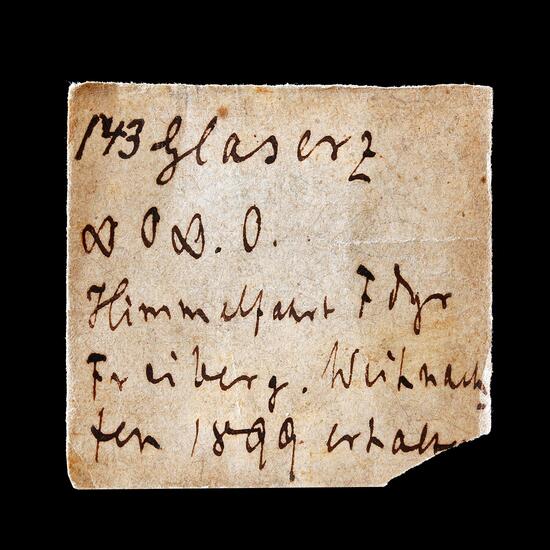 143 Glaserz
∞ O ∞. O.
Himmelfahrt Fdgr
Freiberg. Weihnach-
ten 1899 erhalten